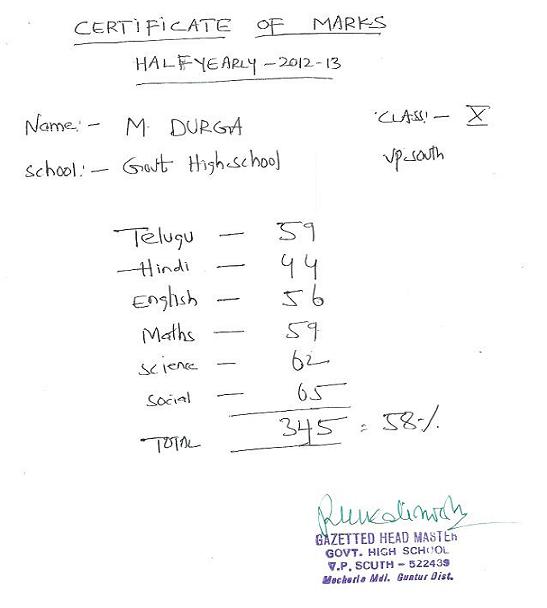 CERTIFICATE OF MARKS
HALFYEARLY - 2012-13
Name:- M. DURGA CLASS:- X
School:- Govt High-school VP-south
Telugu - 59
Hindi - 44
English - 56
Maths - 59
Science - 62
Social - 65
TOTAL 345 = 58-/.
GAZETTED HEAD MASTER
GOVT. HIGH SCHOOL
V.P. SOUTH - 522439
Macherla Mdl. Guntur Dist.